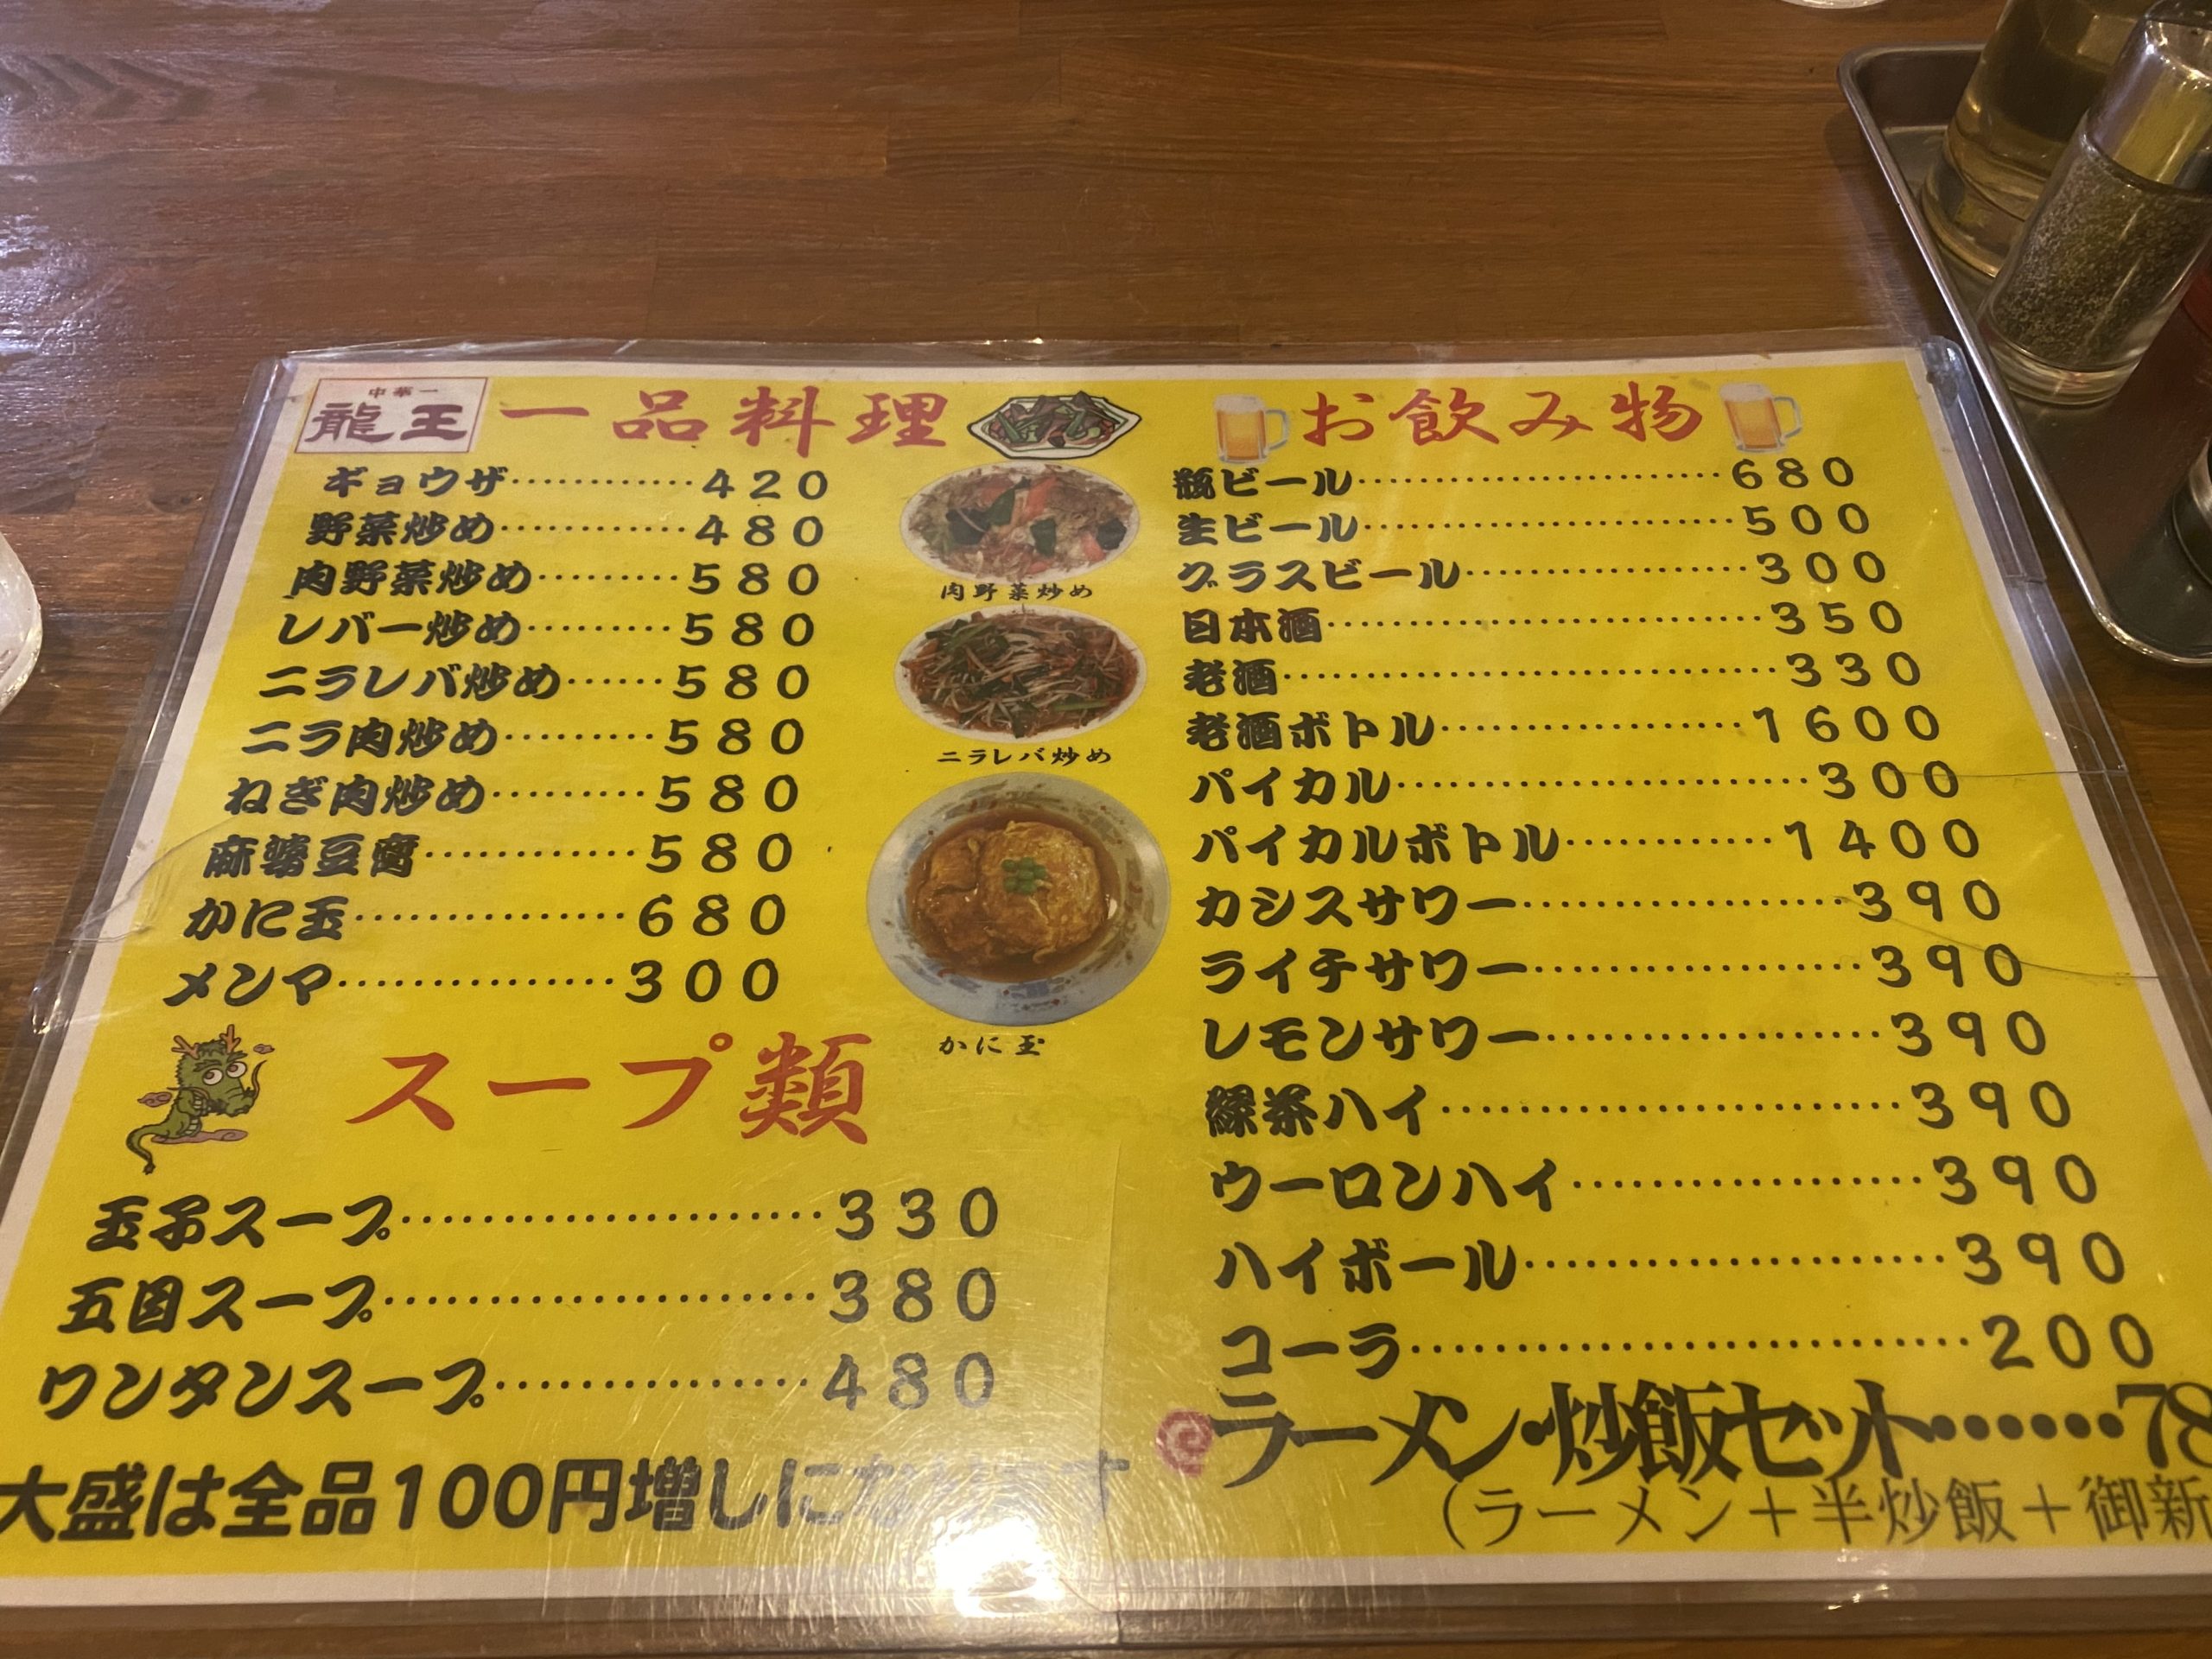 中華一
龍王
一品料理
ギョウザ…………420
野菜炒め…………480
肉野菜炒め………580
レバー炒め………580
ニラレバ炒め……580
ニラ肉炒め………580
ねぎ肉炒め………580
麻婆豆腐…………580
かに玉……………680
メンマ……………300
肉野菜炒め
ニラレバ炒め
かに玉
スープ類
玉子スープ……………………330
五目スープ……………………380
ワンタンスープ………………480
大盛は全品100円増しになります
お飲み物
瓶ビール……………………680
生ビール……………………500
グラスビール………………300
日本酒………………………350
老酒…………………………330
老酒ボトル………………1600
パイカル……………………300
パイカルボトル…………1400
カシスサワー………………390
ライチサワー………………390
レモンサワー………………390
緑茶ハイ……………………390
ウーロンハイ………………390
ハイボール…………………390
コーラ………………………200
ラーメン・炒飯セット……78
（ラーメン＋半炒飯＋御新